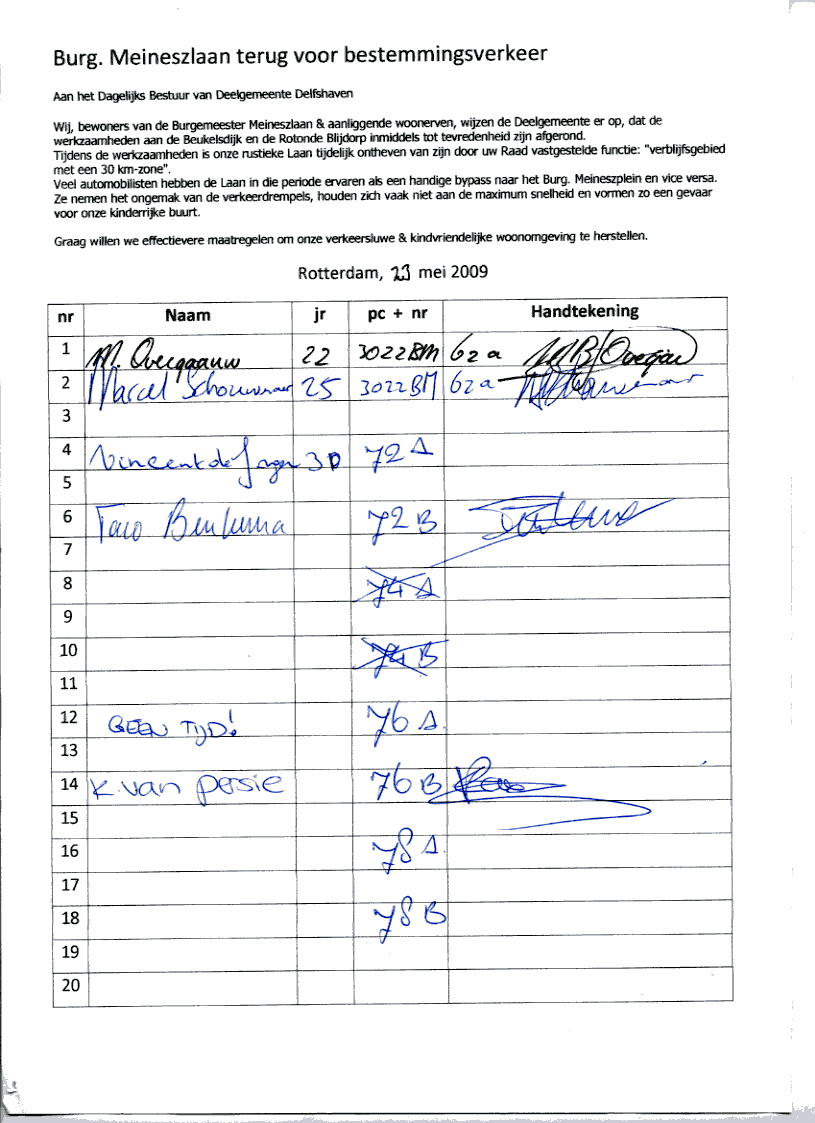 Burg. Meineszlaan terug voor bestemmingsverkeer
Aan het Dagelijks Bestuur van Deelgemeente Delfshaven
Wij, bewoners van de Burgemeester Meineszlaan & aanliggende woonerven, wijzen de Deelgemeente er op, dat de
werkzaamheden aan de Beukelsdijk en de Rotonde Blijdorp inmiddels tot tevredenheid zijn afgerond.
Tijdens de werkzaamheden is onze rustieke Laan tijdelijk ontheven van zijn door uw Raad vastgestelde functie: "verblijfsgebied
met een 30 km-zone".
Veel automobilisten hebben de Laan in die periode ervaren als een handige bypass naar het Burg. Meineszplein en vice versa.
Ze nemen het ongemak van de verkeerdrempels, houden zich vaak niet aan de maximum snelheid en vormen zo een gevaar
voor onze kinderrijke buurt.
Graag willen we effectievere maatregelen om onze verkeersluwe & kindvriendelijke woonomgeving te herstellen.
Rotterdam, 23 mei 2009
nr Naam jr pc + nr Handtekening
1 M. Overgaauw 22 3022BM 62a
2 Marcel Schouwenaar 25 3022BM 62a
3
4 Vincent de Jonge 30 72 A
5
6 Taco Bentuma 72 B
7
8 74 A
9
10 74 B
11
12 GEEN TIJD! 76 A.
13
14 K. van persie 76 B
15
16 78 A
17
18 78 B
19
20